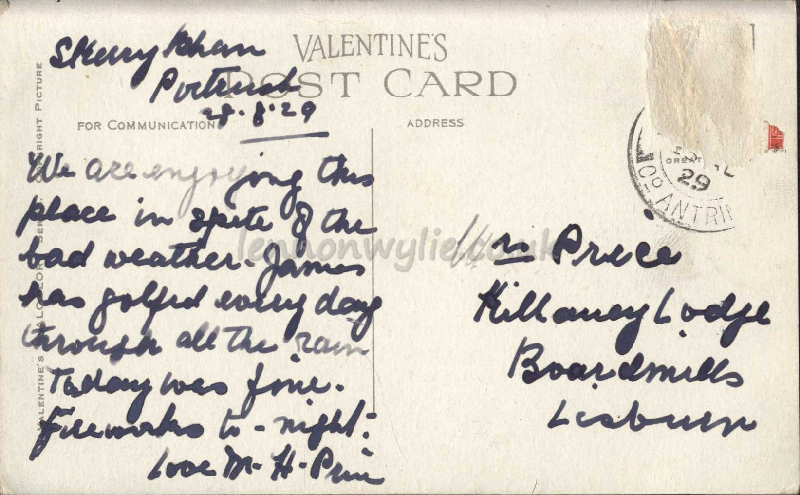 Skerry Bhan
Portrush
28.8.29
VALENTINE'S
POST CARD
FOR COMMUNICATION
ADDRESS
We are enjoying this
place in spite of the
bad weather. James
has golfed every day
through all the rain
Today was fine.
Fireworks to-night.
Love M. H. Price
Mrs Price
Killaney Lodge
Boardmills
Lisburn
GREAT
29
Co ANTRIM
lennonwylie.co.uk